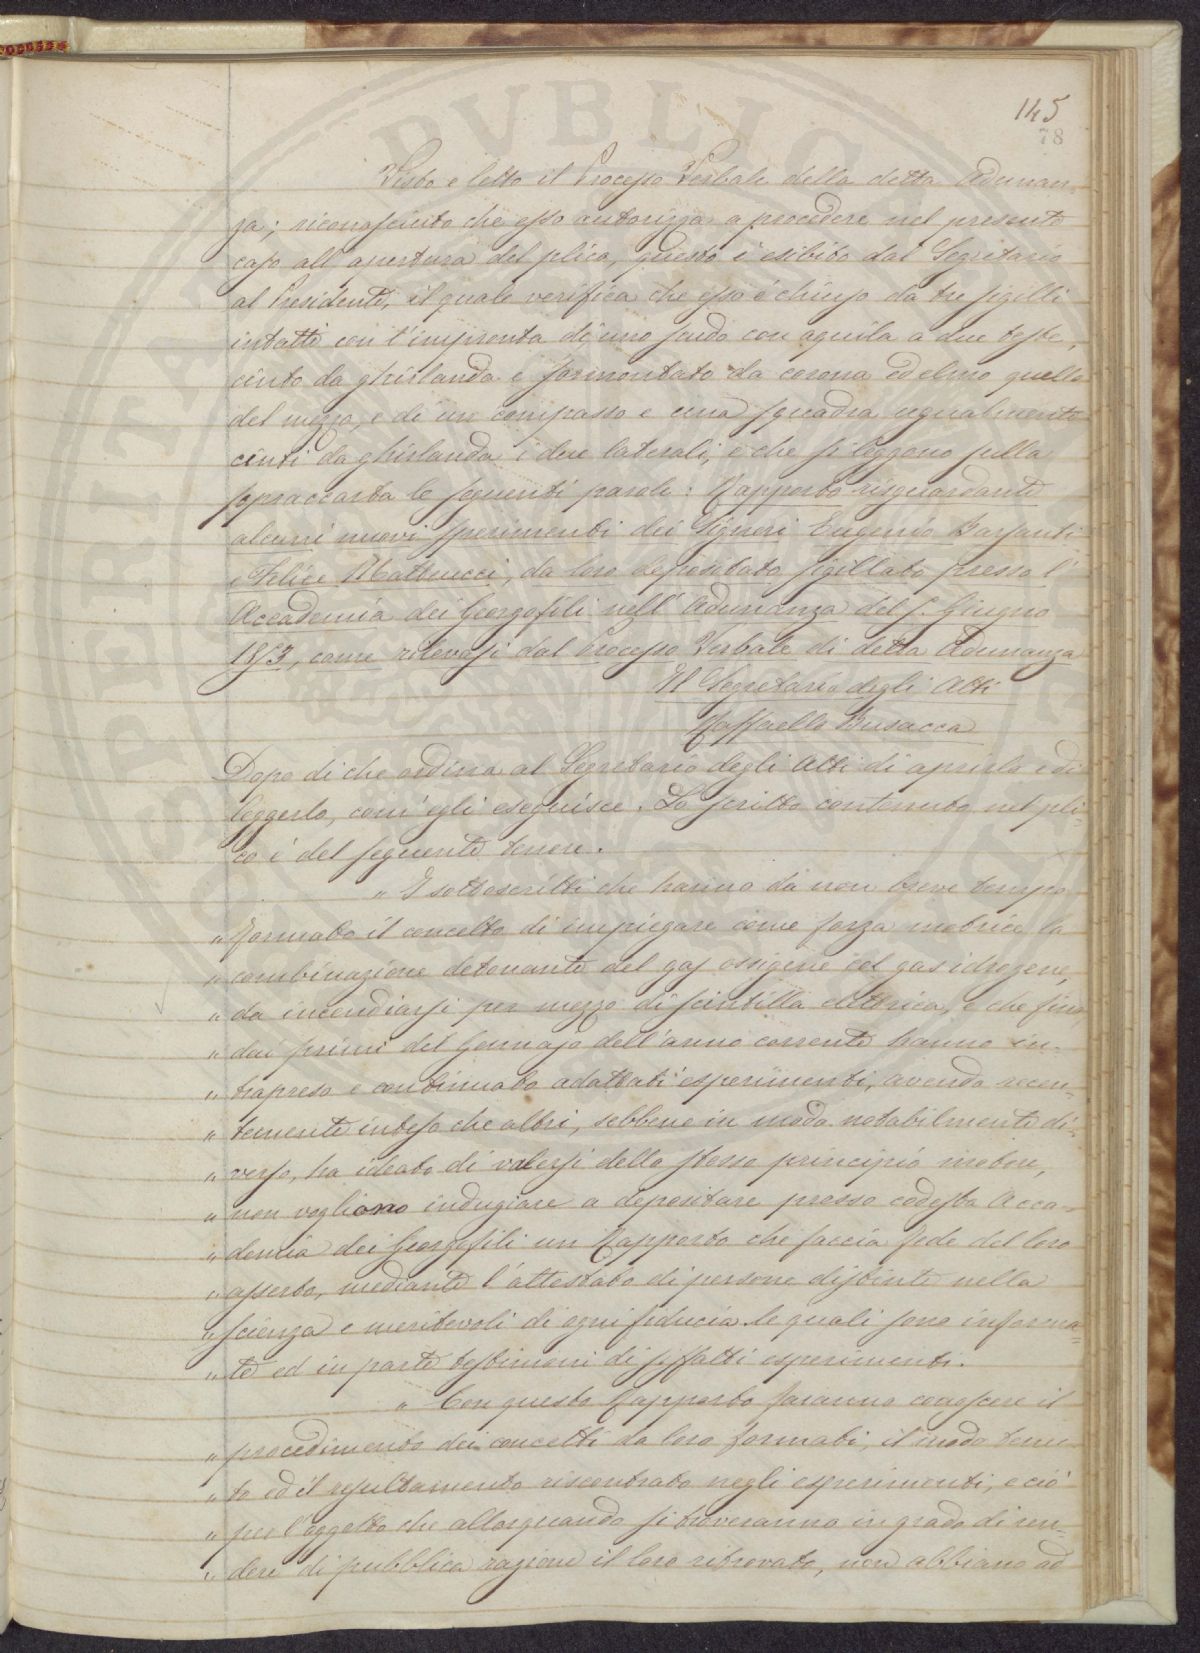 145
78
PVBLICA
PROSPERITATI
Visto e letto il Processo Verbale della detta Adunan-
za; riconosciuto che esso autorizza a procedere nel presente
caso all'apertura del plico, questo è esibito dal Segretario
al Presidente, il quale verifica che esso è chiuso da tre sigilli
intatti con l'impronta di uno scudo con aquila a due teste,
cinto da ghirlanda e sormontato da corona ed elmo quello
del mezzo, e di un compasso e una squadra egualmente
cinti da ghirlanda i due laterali, e che si leggono sulla
sopraccarta le seguenti parole: Rapporto risguardante
alcuni nuovi sperimenti dei Signori Eugenio Barsanti
e Felice Matteucci, da loro depositato sigillato presso l'
Accademia dei Georgofili nell'Adunanza del 5. Giugno
1853, come rilevasi dal Processo Verbale di detta Adunanza
Il Segretario degli Atti
Raffaello Busacca
Dopo di che ordina al Segretario degli Atti di aprirlo e di
leggerlo, com'egli eseguisce. Lo scritto contenuto nel pli-
co è del seguente tenore.
„ I sottoscritti che hanno da non breve tempo
„ formato il concetto di impiegare come forza motrice la
„ combinazione detonante del gas ossigene col gas idrogene,
„ da incendiarsi per mezzo di scintilla elettrica, e che fino
„ dai primi del Gennajo dell'anno corrente hanno in-
„ trapreso e continuato adattati esperimenti, avendo recen-
„ temente inteso che altri, sebbene in modo notabilmente di-
„ verso, ha ideato di valersi dello stesso principio motore,
„ non vogliono indugiare a depositare presso codesta Acca-
„ demia dei Georgofili un Rapporto che faccia fede del loro
„ asserto, mediante l'attestato di persone distinte nella
„ scienza e meritevoli di ogni fiducia. le quali sono informa-
„ te ed in parte testimoni di siffatti esperimenti.
„ Con questo Rapporto faranno conoscere il
„ procedimento dei concetti da loro formati, il modo tenu-
„ to ed il resultamento riscontrato negli esperimenti, e ciò
„ per l'oggetto che allorquando si troveranno in grado di ren-
„ dere di pubblica ragione il loro ritrovato, non abbiano ad